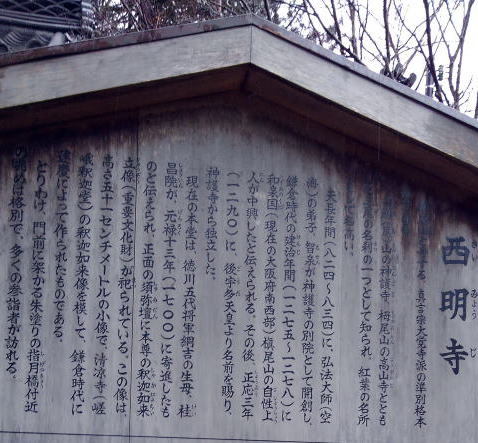 西明寺
さいみょうじ
真言宗大覚寺派の準別格本
山の神護寺、栂尾山の高山寺ととも
の名刹の一つとして知られ、紅葉の名所
高い。
天長年間（八二四～八三四）に、弘法大師（空
海）の弟子、智泉が神護寺の別院として開創し、
鎌倉時代の建治年間（一二七五～一二七八）に
和泉国（現在の大阪府南西部）槇尾山の自性上
人が中興したと伝えられる。その後、正応三年
（一二九〇）に、後宇多天皇より名前を賜り、
神護寺から独立した。
現在の本堂は、徳川五代将軍綱吉の生母、桂
昌院が、元禄十三年（一七〇〇）に寄進したも
のと伝えられ、正面の須弥壇に本尊の釈迦如来
立像（重要文化財）が祀られている。この像は、
高さ五十一センチメートルの小像で、清凉寺（嵯
峨釈迦堂）の釈迦如来像を模して、鎌倉時代に
運慶によって作られたものである。
とりわけ、門前に架かる朱塗りの指月橋付近
の眺めは格別で、多くの参詣者が訪れる。